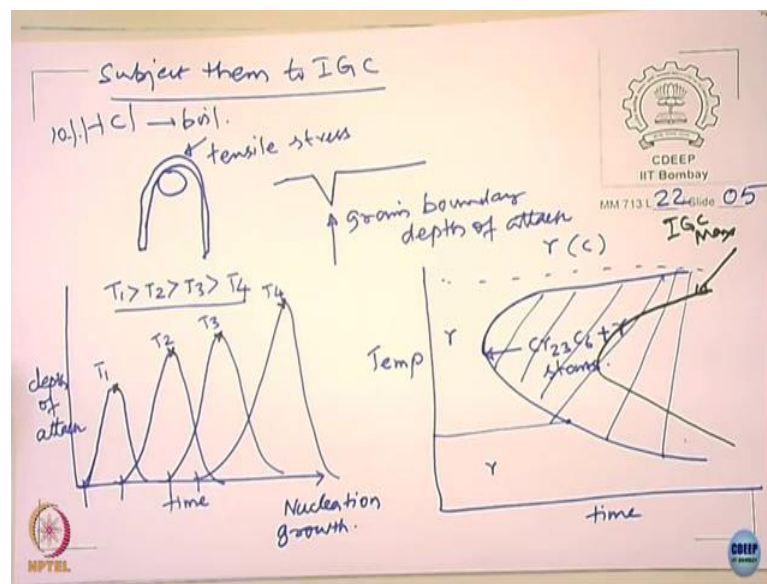 Subject them to IGC
10% HCl → boil.
tensile stress
grain boundary
depth of attack
CDEEP
IIT Bombay
MM 713 L 22 Slide 05
T1 > T2 > T3 > T4
T1
T2
T3
T4
depth
of
attack
time
Nucleation
growth.
γ (C)
IGC
Max
Temp
γ
Cr23C6 + γ
starts.
γ
time
NPTEL
CDEEP
IIT BOMBAY